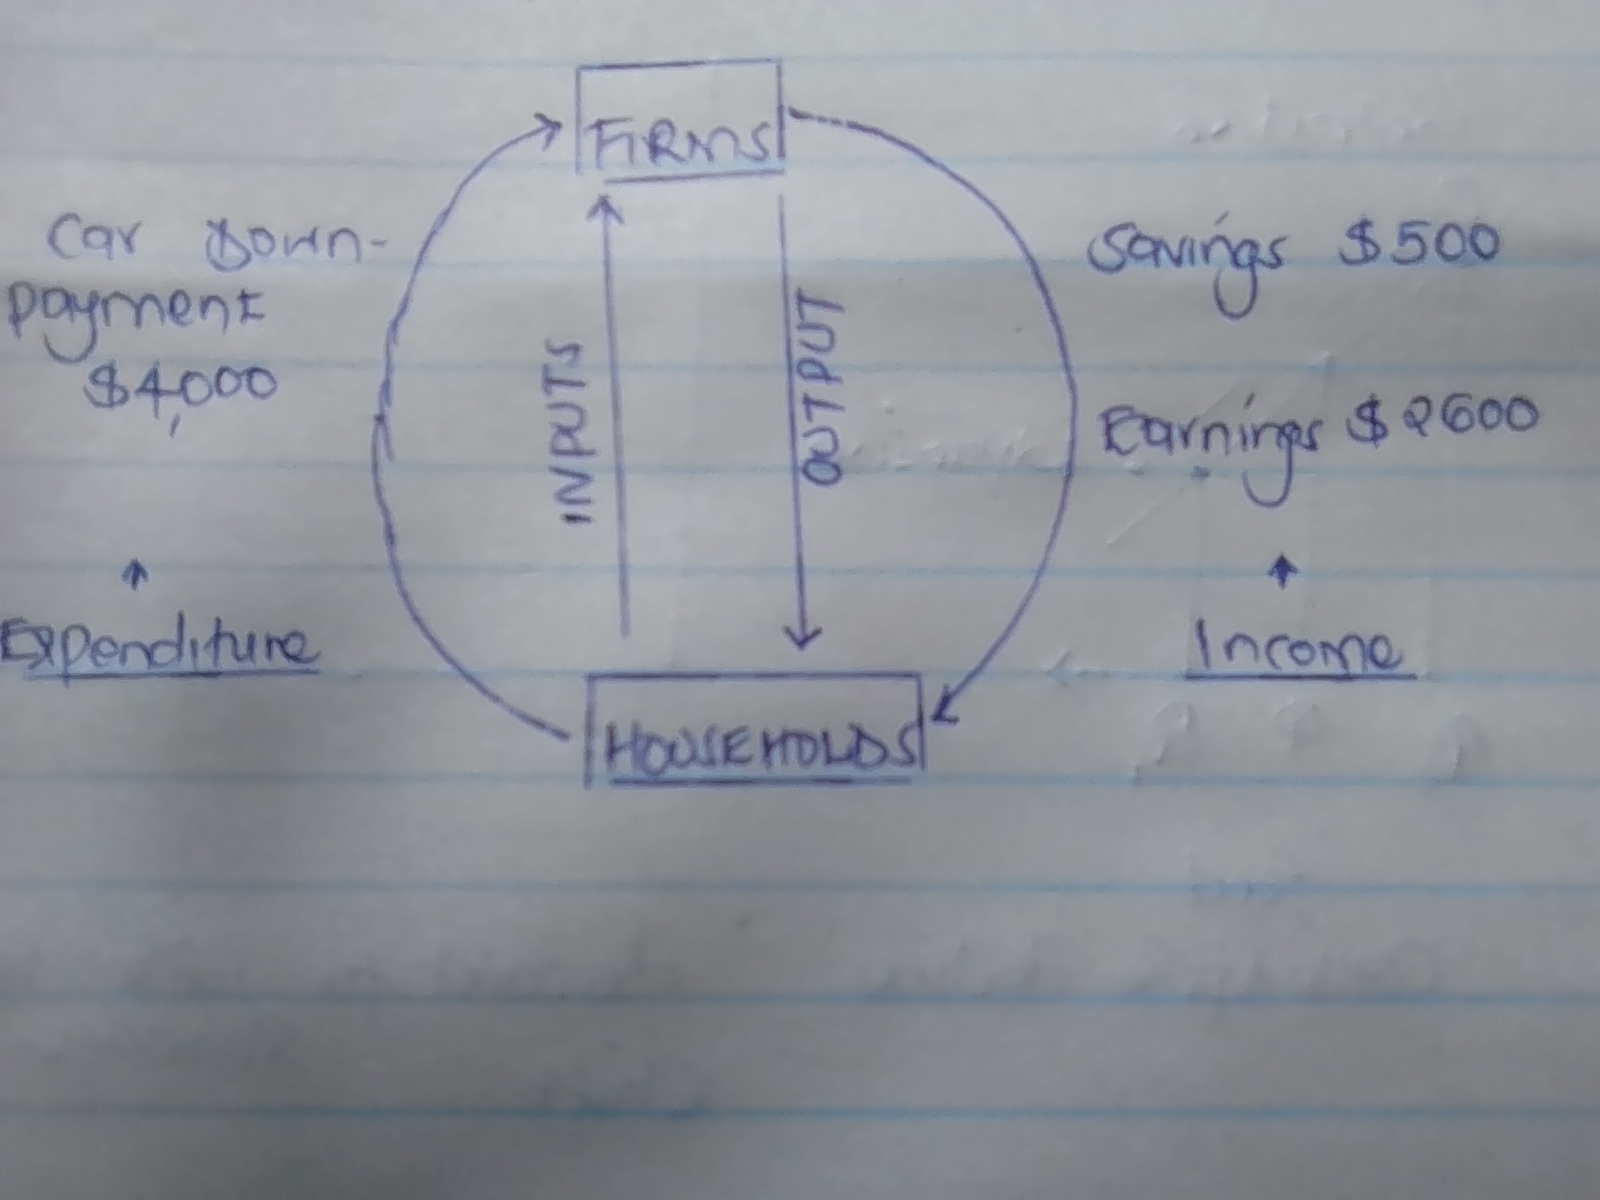 FIRMS
Car Down-
payment
$4,000
Savings $500
INPUTS
OUTPUT
Earnings $2600
Expenditure
Income
HOUSEHOLDS